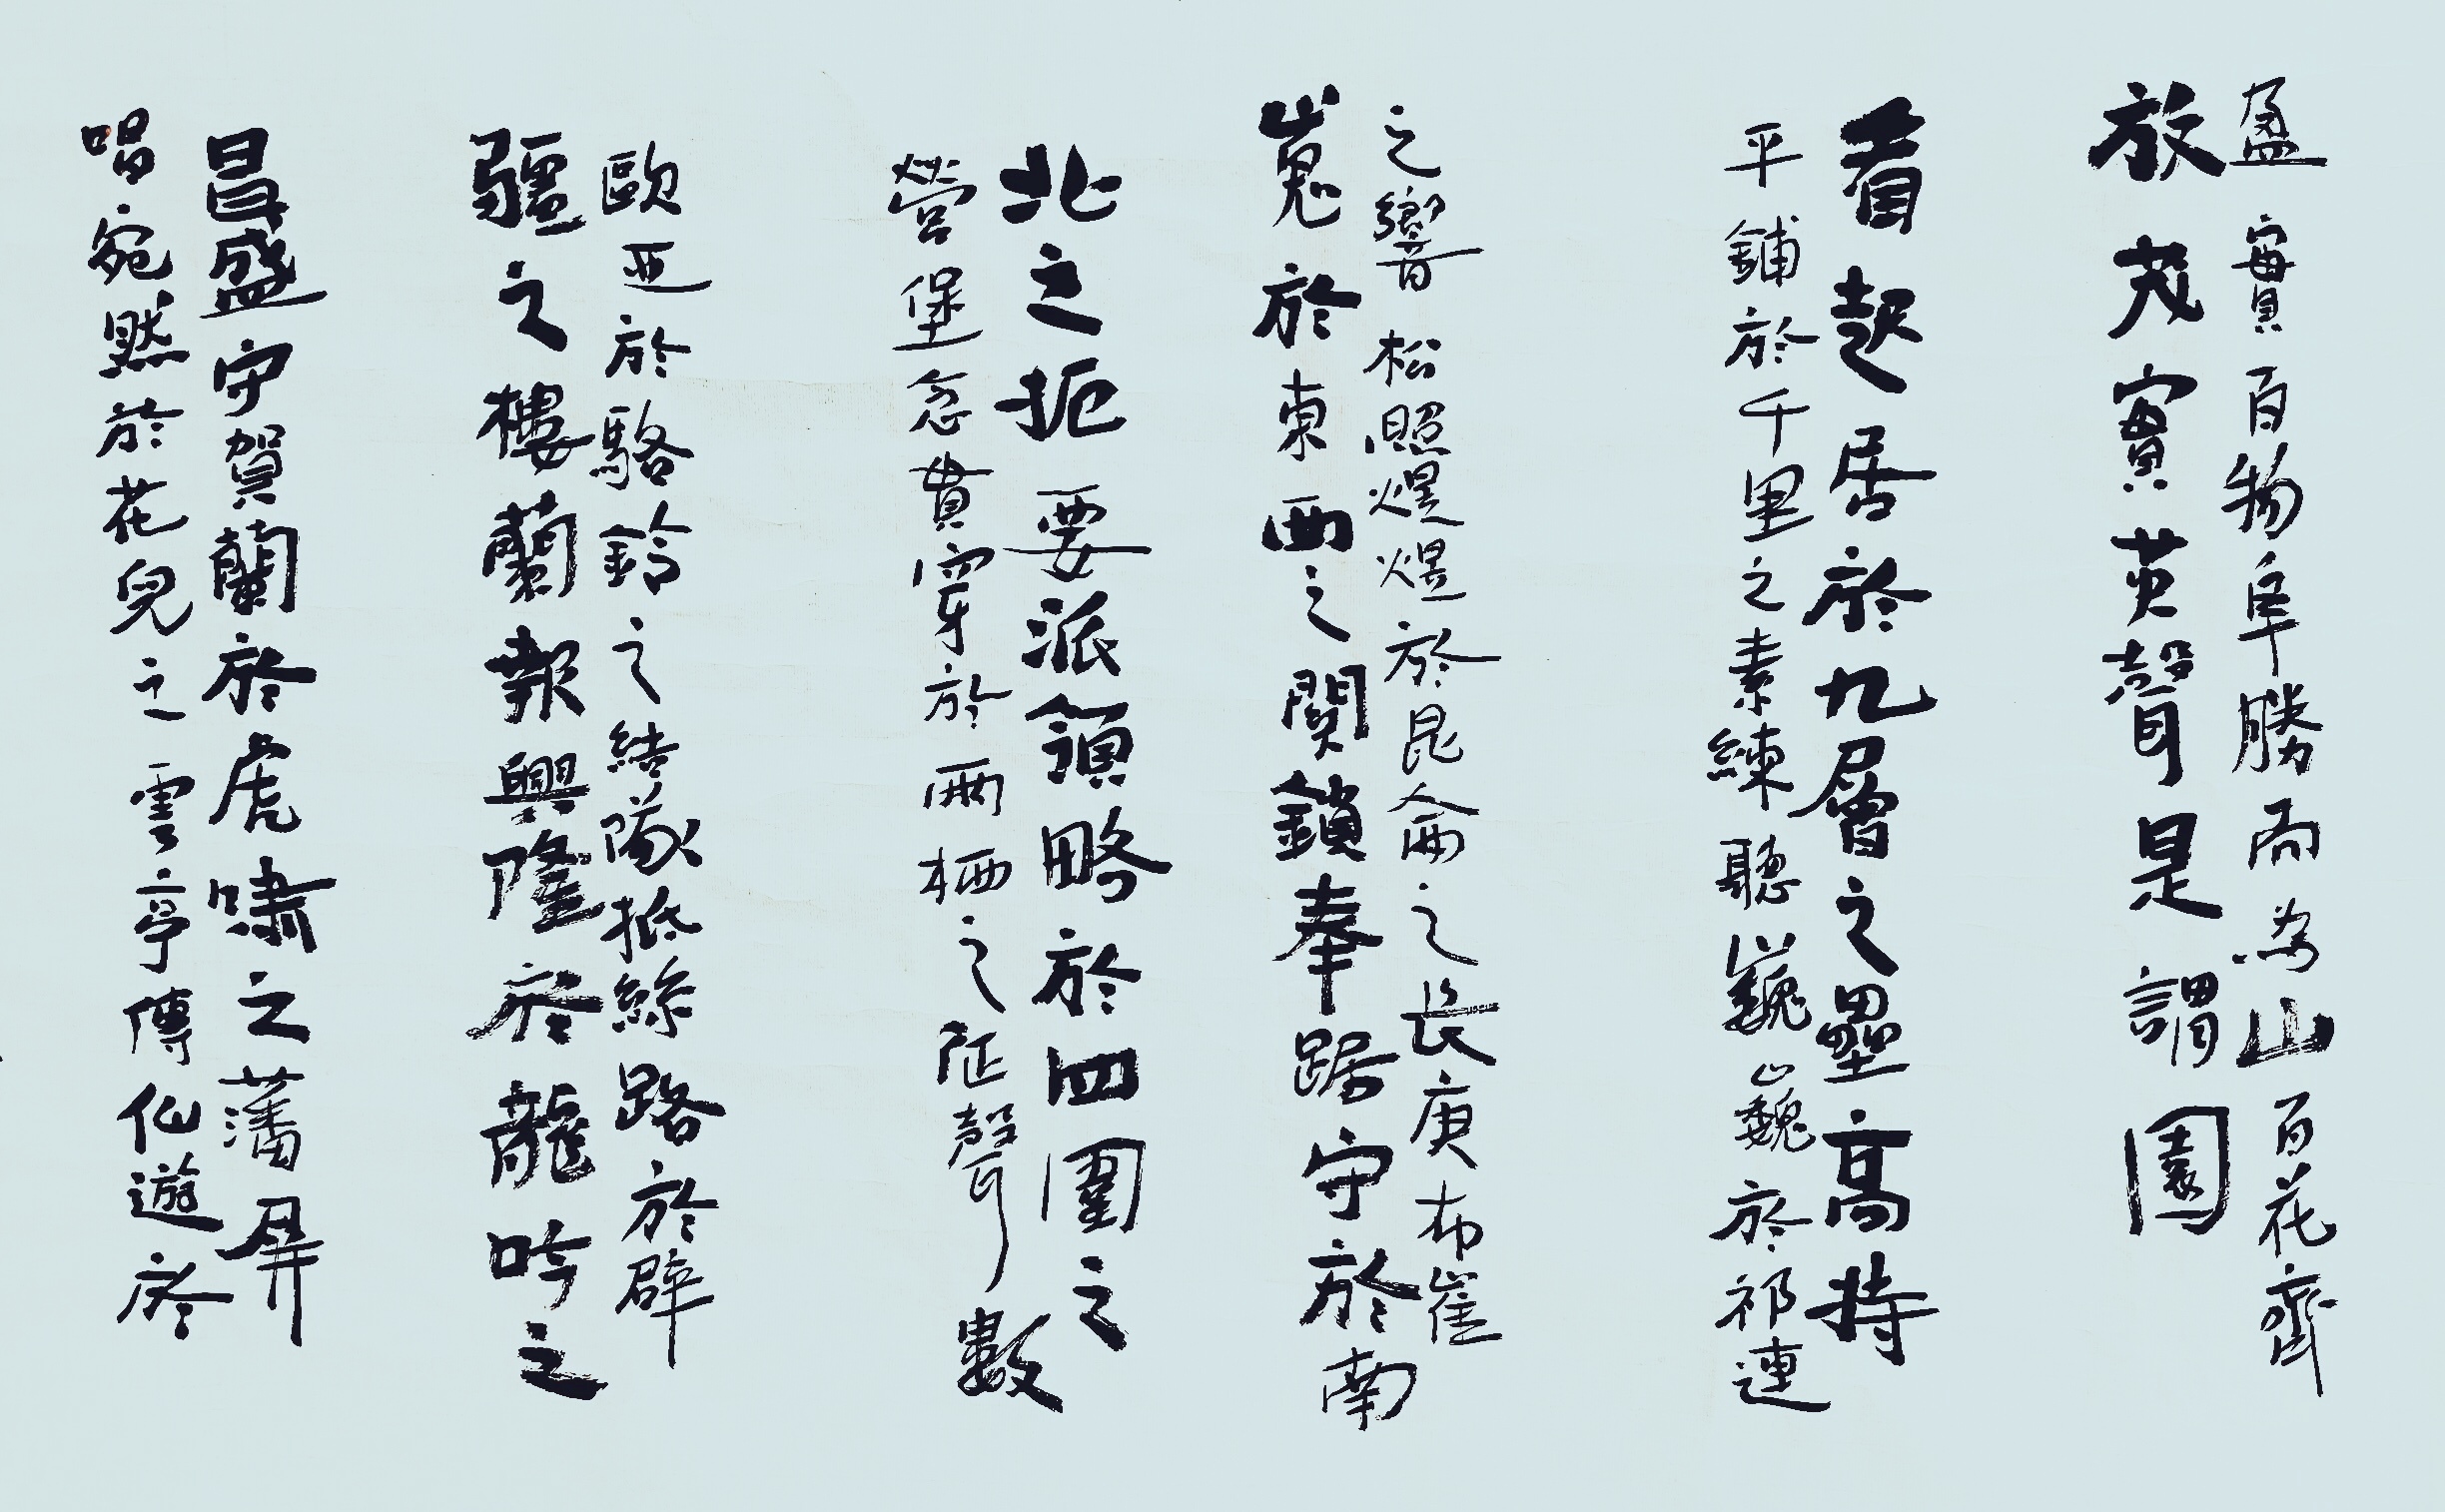 盈實百物阜勝而為山百花齊
放茂實英聲是謂園
看起居於九層之壘高持
平鋪於千里之素練聽巍巍於祁連
之響松照煜煜於昆侖之長庚布崔
嵬於東西之関鎖奉踞守於南
北之扼要派領略於四圍之
營堡忽貫穿於兩栖之征聲數
歐亞於駱鈴之結隊抵絲路於辟
疆之樓蘭報興隆於龍吟之
昌盛守賀蘭於虎嘯之藩屏
唱宛然於花兒之雲亭傳仙遊於